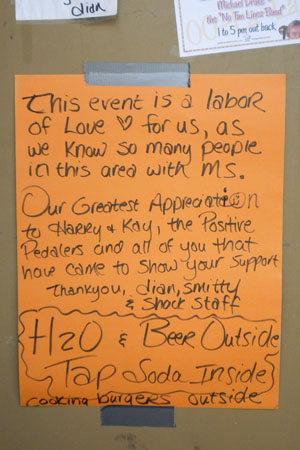 dian
Michael Dean
the "No Tan Lines Band"
1 to 5 pm out back
This event is a labor
of Love ♡ for us, as
we know so many people
in this area with MS.
Our Greatest Appreciation
to Harry & Kay, the Positive
Pedalers and all of you that
have came to show your support
Thankyou, dian, smitty
& Shock staff
H2O & Beer Outside
Tap Soda Inside
cooking burgers outside